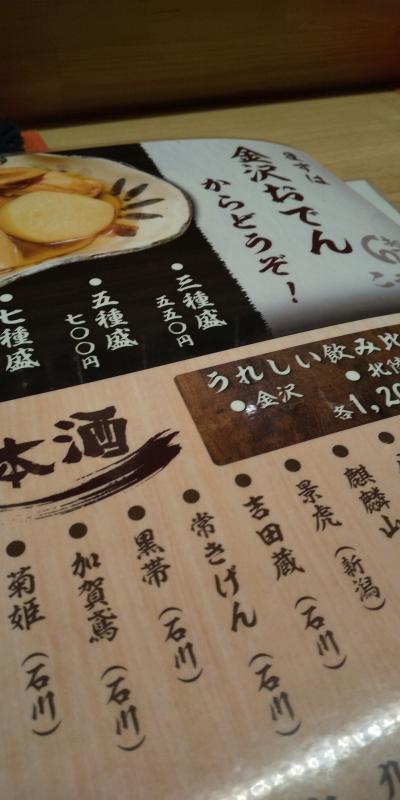 まずは
金沢おでん
からどうぞ！
●三種盛
五五〇円
●五種盛
七〇〇円
●七種盛
うれしい飲み比
●金沢
●北陸
各1,20
本酒
●麒麟山（新潟）
●景虎（新潟）
●吉田蔵（石川）
●常きげん（石川）
●黒帯（石川）
●加賀鳶（石川）
●菊姫（石川）